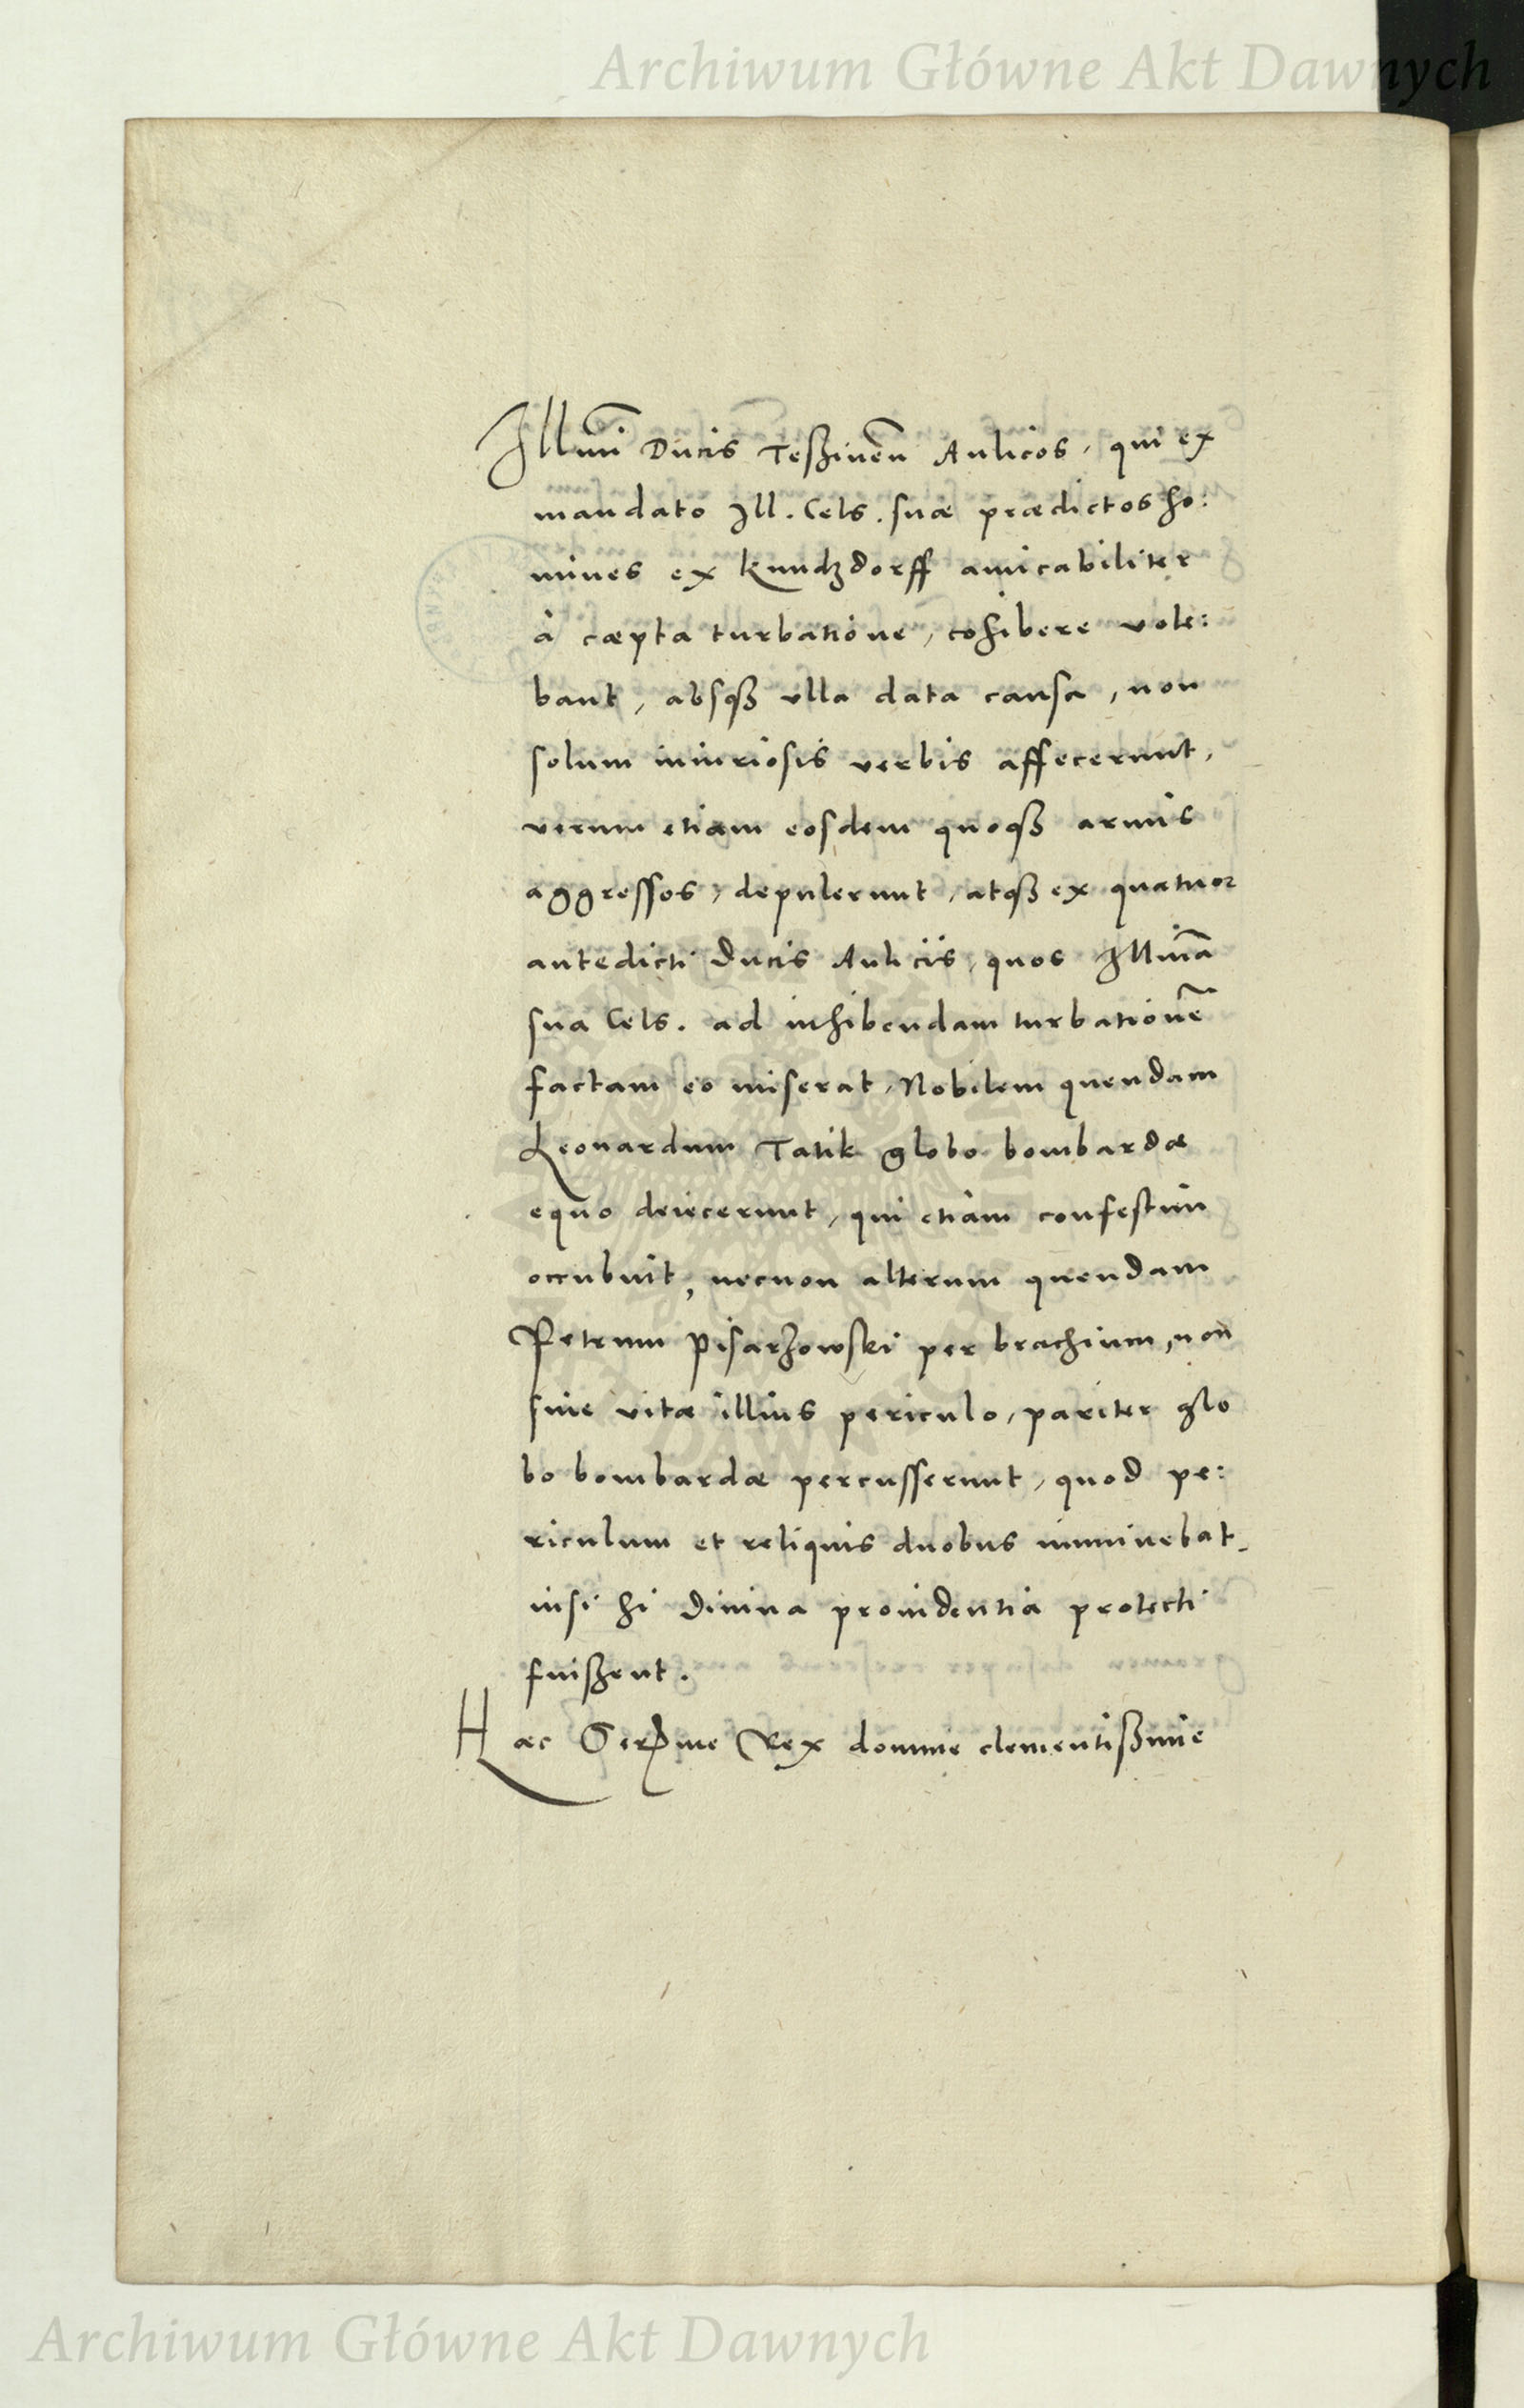 Archiwum Główne Akt Dawnych
Illmi Ducis Teßinen̄ Aulicos, qui ex
mandato Ill. Cels. suæ prædictos ho:
mines ex Kundzdorff amicabiliter
à cæpta turbatione, cohibere vole:
bant, absqꝫ ulla data causa, non
solum iniuriosis verbis affecerunt,
verum etiam eosdem quoqꝫ armis
aggressos, depulerunt, atqꝫ ex quatuor
antedicti Ducis Aulicis, quos Illma
sua Cels. ad inhibendam turbationē
factam eo miserat, Nobilem quendam
Leonardum Tatik globo bombardæ
equo deiecerunt, qui etiam confestim
occubuit, necnon alterum quendam
Petrum Pisarzowski per brachium, non
sine vitæ illius periculo, pariter glo
bo bombardæ percusserunt, quod pe:
riculum et reliquis duobus imminebat,
nisi hi Diuina prouidentia protecti
fuißent.
Hæc Serme Rex domine clementißime
Archiwum Główne Akt Dawnych